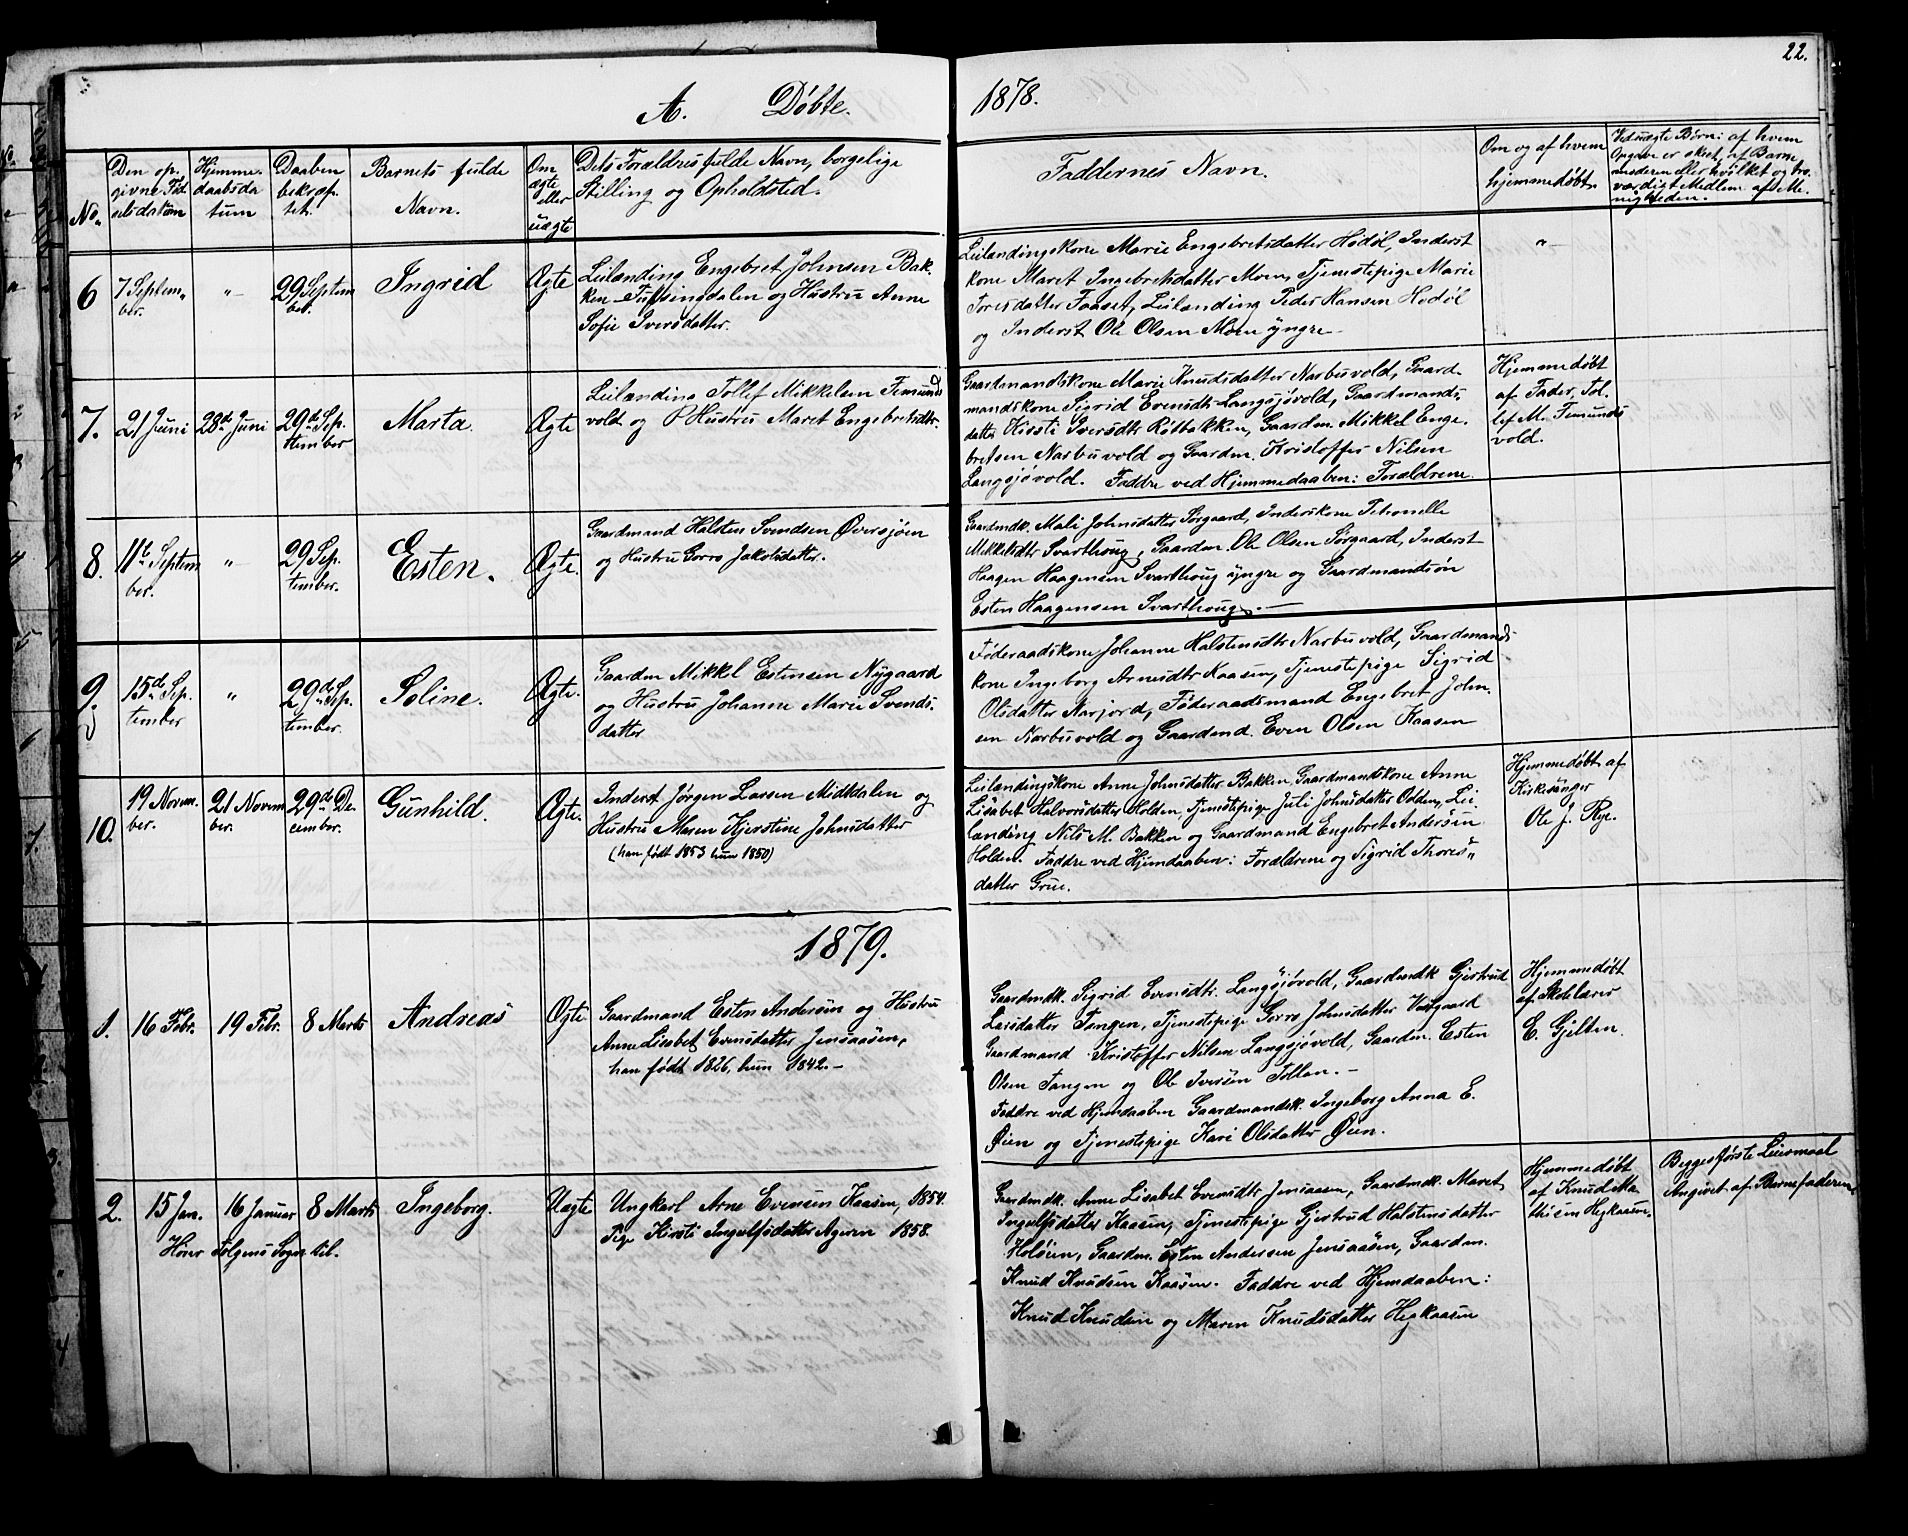 22.
A. Döbte. 1878.
No.
Den op-
givne Föd-
selsdatum
Hjemme-
daabsda
tum
Daaben
bekræf-
tet.
Barnets fulde
Navn.
Om
ægte
eller
uægte
Dets Forældres fulde Navn, borgelige
Stilling og Opholdsted.
Faddernes Navn.
Om og af hvem
hjemmedøbt.
Ved uægte Børn: af hvem
Opgave er skeet, af Barne
moderen eller hvilket og tro-
værdigt Medlem af Me-
nigheden.
6
7 Septem-
ber.
"
29 Septem
ber.
Ingrid
Ægte
Leilænding Engebret Johnsen Bak-
ken Tufsingdalen og Hustru Anne
Sofie Iversdatter.
Leilændingskone Marie Engebretsdatter Hodøl, Inderst
kone Maret Ingebretsdatter Moen, Tjenestepige Marie
Toresdatter Faaset, Leilænding Peder Hansen Hodöl
og Inderst Ole Olsen Moen yngre
"
7.
21 Juni
28d Juni
29d Sep-
tember
Marta.
Ægte
Leilænding Tollef Mikkelsen Femund
vold og Hustru Maret Engebretsdtr.
Gaardmandskone Marie Knudsdatter Narbuvold, Gaard-
mandskone Sigrid Evensdtr Langsjøvold, Gaardmands
datter Kirsti Iversdtr Røtbakken, Gaardm. Mikkel Enge-
bretsen Narbuvold og Gaardm. Kristoffer Nilsen
Langsjøvold. Faddre ved Hjemmedaaben: Forældrene.
Hjemmedøbt
af Fader, Tol-
lef M. Femunds
vold.
8.
11te Septem
ber.
"
29 Sep-
tember.
Esten.
Ægte.
Gaardmand Halsten Svendsen Øversjøen
og Hustru Gorro Jakobsdatter.
Gaardmdk. Mali Johnsdatter Sørgaard, Inderskone
Mikkelsdtr Svarthoug, Gaardm. Ole Olsen Sørgaard, Inderst
Haagen Haagensen Svarthoug yngre og Gaardmandsøn
Esten Haagensen Svarthoug.
9.
15de Sep-
tember
"
29de Sep-
tember.
Soline.
Ægte.
Gaardm Mikkel Estensen Nygaard
og Hustru Johanne Marie Svends-
datter
Føderaadskone Johanne Halstensdtr Narbuvold, Gaardmands
kone Ingeborg Arnesdtr Kaasen, Tjenestepige Sigrid
Olsdatter Narjord, Føderaadsmand Engebret John-
sen Narbuvold og Gaardmd. Even Olsen Kaasen
10.
19 Novem-
ber.
21 Novem
ber.
29de De-
cember.
Gunhild.
Ægte.
Inderst Jørgen Larsen Midtdalen og
Hustru Maren Kjerstine Johnsdatter
(han født 1853 hun 1850)
Leilændingskone Anne Johnsdatter Bakken, Gaardmandskone Anne
Lisabet Halvorsdatter Holden, Tjenestepige Juli Johnsdatter Odden, Lei-
lænding Nils M. Bakken og Gaardmand Engebret Andersen
Holden. Faddre ved Hjemdaaben: Forældrene og Sigrid Thores-
datter Grue.
Hjemmedøbt af
Kirkesanger
Ole J. Rye.
1879.
1.
16 Febr.
19 Febr.
8 Marts
Andreas
Ægte
Gaardmand Esten Andersön og Hustru
Anne Lisabet Evensdatter Jensaasen,
han født 1826, hun 1842.
Gaardmdk. Sigrid Evensdtr. Langsjøvold, Gaardmdk Gjertrud
Larsdatter Tangen, Tjenestepige Gorro Johnsdatter Vestgaard
Gaardmand Kristoffer Nilsen Langsjøvold, Gaardm. Esten
Olsen Tangen og Ole Iversen Tollan.
Faddre ved Hjemdaaben Gaardmandsk. Ingeborg Anna E.
Øien og Tjenestepige Kari Olsdatter Øien.
Hjemmedøbt
af Skolelærer
E. Gjelten.
2.
15 Jan.
16 Januar
8 Marts
Ingeborg.
Uægte
Ungkarl Arne Evensen Kaasen, 1854.
Pige Kirsti Ingulfsdatter Ageren 1858.
Hörer Tolgens Sogn til.
Gaardmdk. Anne Lisabet Evensdtr Jensaasen, Gaardmdk. Maret
Ingulfsdatter Kaasen, Tjenestepige Gjertrud Halstensdatter
Holöien, Gaardm. Esten Andersen Jensaasen, Gaardm.
Knud Knudsen Kaasen. Faddre ved Hjemdaaben:
Knud Knudsen og Maren Knudsdatter Hegkaasen
Hjemmedøbt
af Knud Ma-
thisen Hegkaasen.
Begges første Leiermaal
Angivet af Barnefaderen